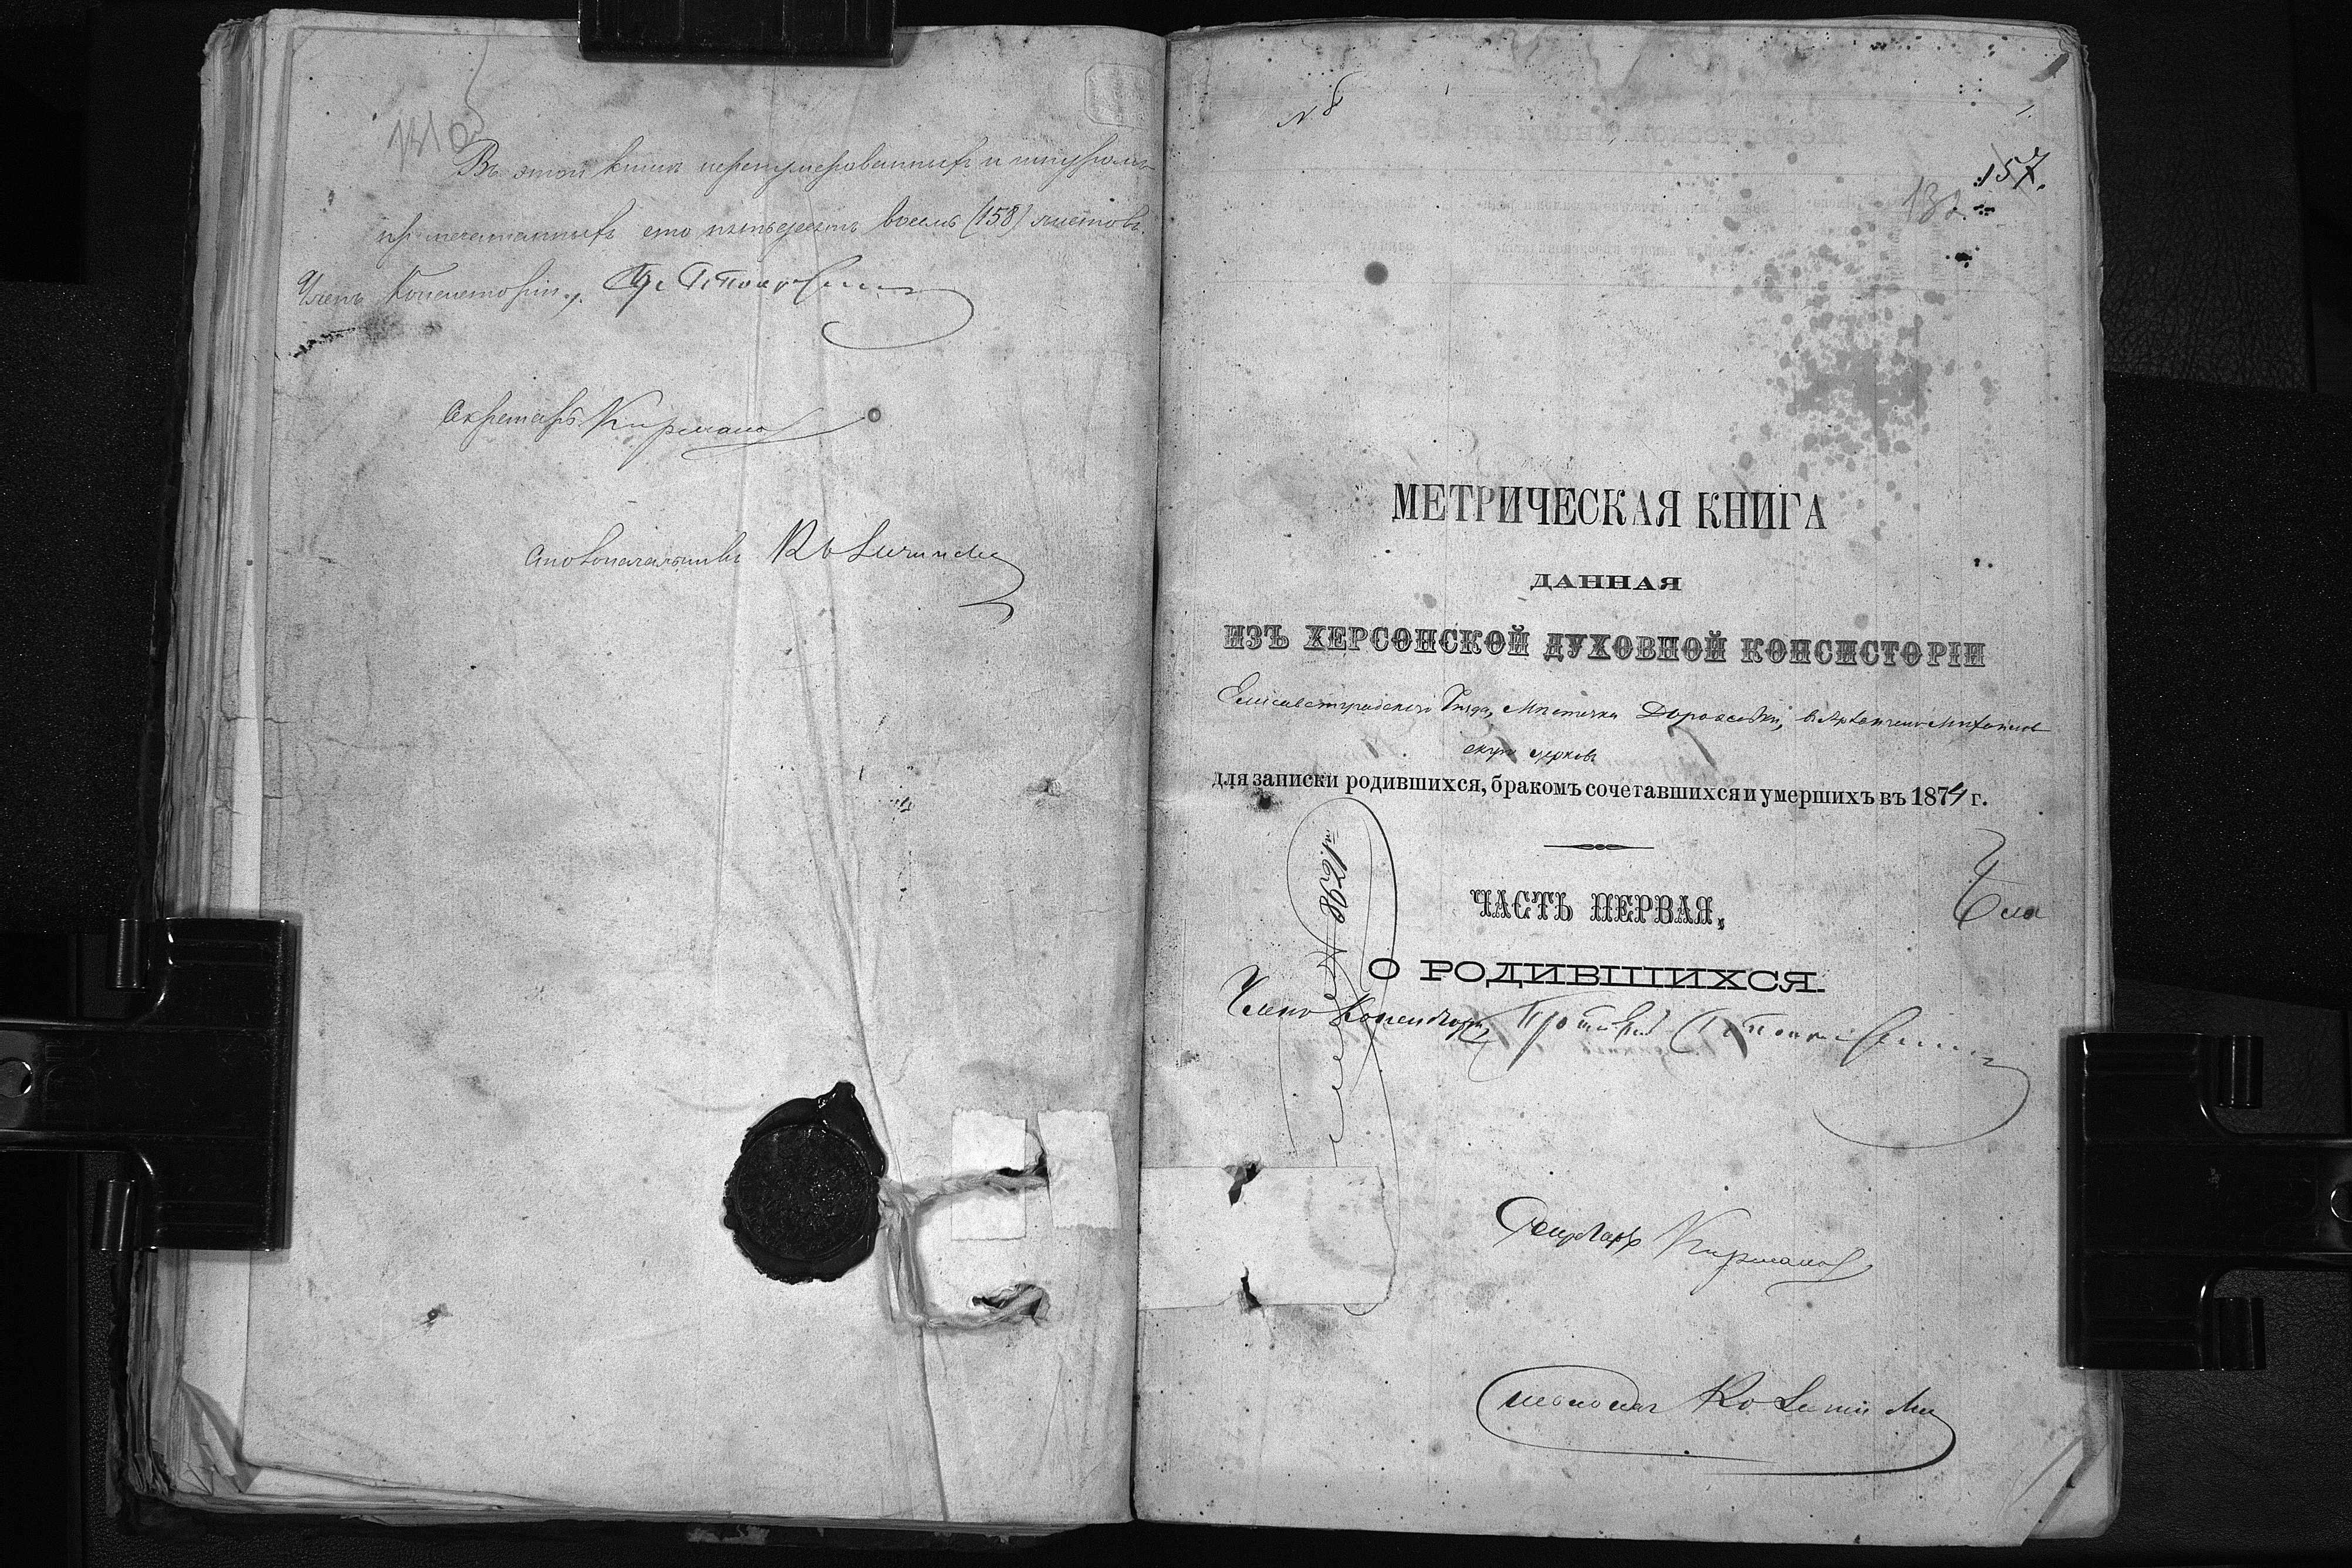 Въ этой книгѣ перенумерованныхъ и шнуромъ
припечатанныхъ сто пятьдесятъ восемь (158) листовъ.
Членъ Консисторіи,
Секретарь
Столоначальникъ
№ 8
157.
132
МЕТРИЧЕСКАЯ КНИГА
ДАННАЯ
ИЗЪ ХЕРСОНСКОЙ ДУХОВНОЙ КОНСИСТОРІИ
Елисаветградскаго уѣзда, Мѣстечка въ Архангело-Михайлов
скую церковь
для записки родившихся, бракомъ сочетавшихся и умершихъ въ 1874 г.
ЧАСТЬ ПЕРВАЯ,
О РОДИВШИХСЯ.
№ 8621
Членъ Консисторіи Протоіерей
Секретарь